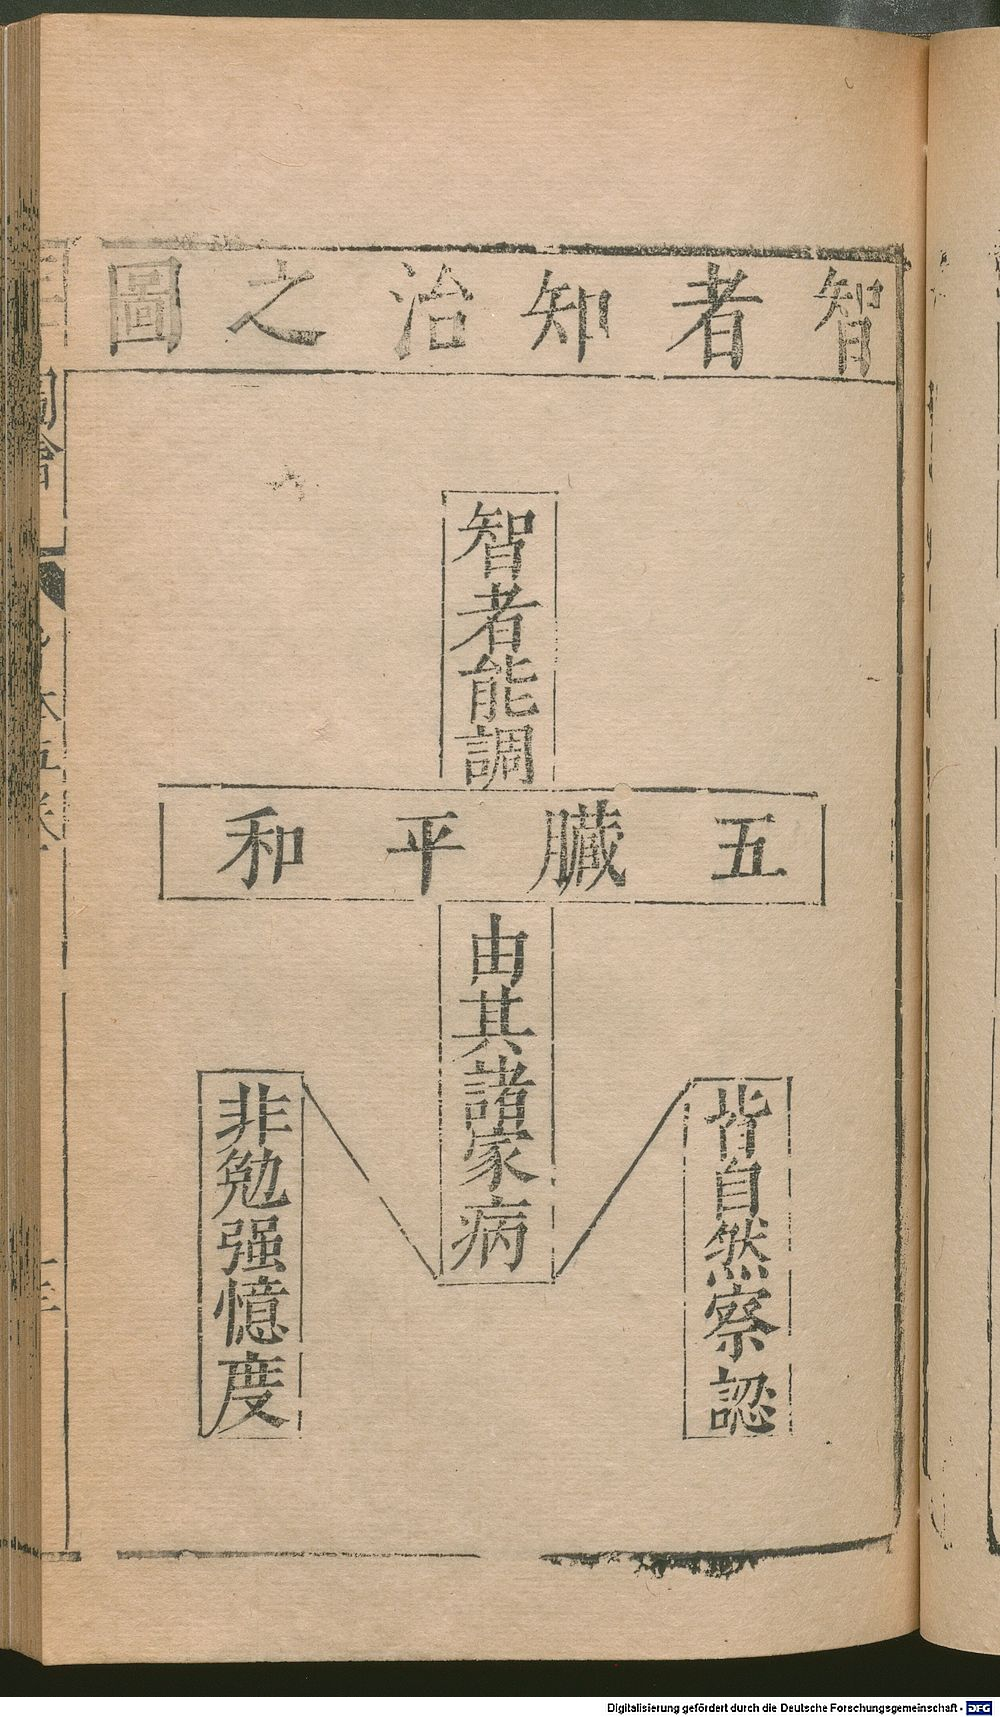 智者知治之圖
智者能調
五臟平和
由其諸家病
皆自然察認
非勉强憶度
Digitalisierung gefördert durch die Deutsche Forschungsgemeinschaft - DFG